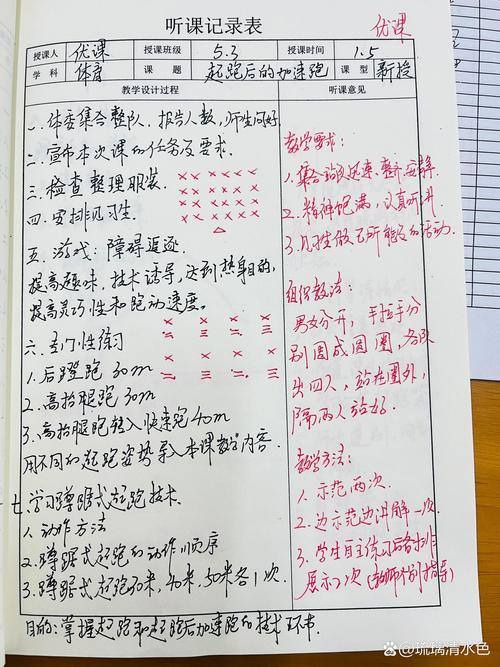 听课记录表
优课
授课人 优课 授课班级 5.3 授课时间 1.5
学科 体育 课题 起跑后的加速跑 课型 新授
教学设计过程
听课意见
一、体委集合整队、报告人数,师生问好
二、宣布本次课的任务及要求.
三、检查整理服装.
四、安排见习生.
五、游戏:障碍追逐
提高趣味,技术诱导,达到热身目的,
提高灵巧性和跑动速度。
六、专门性练习
1. 后蹬跑 30m
2. 高抬腿跑 30m
3. 高抬腿跑转入快速跑 40m
用不同的起跑姿势导入本课教学内容.
七、学习蹲踞式起跑技术.
1. 动作方法
2. 蹲踞式起跑的动作顺序
3. 蹲踞式起跑30米,40米,50米各1次.
目的:掌握起跑和起跑后加速跑的技术环节.
教学要求:
1. 集合站队迅速、整齐、安静.
2. 精神饱满,认真听讲
3. 见习生做力所能及的活动.
组织教法:
男女分开,手拉手分
别围成圆圈,各队
出四人,站在圈外,
隔两人站好.
教学方法:
1. 示范两次.
2. 边示范边讲解一次.
3. 学生自主练习后各排
展示1次(教师个别指导)
百家号/琉璃清水色